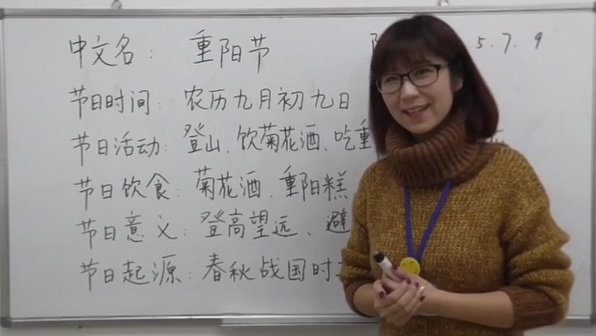 中文名： 重阳节 5.7.9
节日时间：农历九月初九日
节日活动：登山、饮菊花酒、吃重
节日饮食：菊花酒、重阳糕
节日意义：登高望远、避
节日起源：春秋战国时